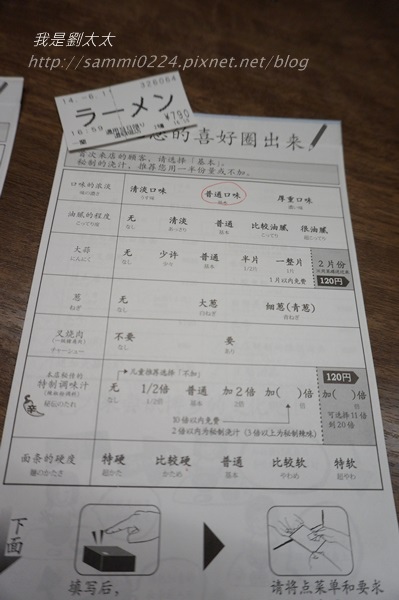 我是劉太太
http://sammi0224.pixnet.net/blog
326064
14.-6.1
ラーメン
16:59
¥790
的喜好圈出来
首次来店的顾客，请选择「基本」。
秘制的浇汁，推荐您用一半份量或不加。
口味的浓淡 清淡口味 普通口味 厚重口味
味の濃さ うす味 基本 濃い味
油腻的程度 无 清淡 普通 比较油腻 很油腻
こってり度 なし あっさり 基本 こってり 超こってり
大蒜 无 少许 普通 半片 一整片 2片份
にんにく なし 少々 基本 1/2片 1片
1片以内免费 120円
葱 无 大葱 细葱(青葱)
ねぎ なし 白ねぎ 青ねぎ
叉烧肉 不要 要
チャーシュー なし あり
儿童推荐选择「不加」 120円
本店秘传的
特制调味汁 无 1/2倍 普通 加2倍 加( )倍 加( )倍
秘伝のたれ なし 1/2倍 基本 2倍
可选择11倍
到20倍
10倍以内免费
2倍以内为秘制浇汁（3倍以上为秘制辣味）
面条的硬度 特硬 比较硬 普通 比较软 特软
麺のかたさ 超かた かため 基本 やわめ 超やわ
下面
填写后，
请将点菜单和要求